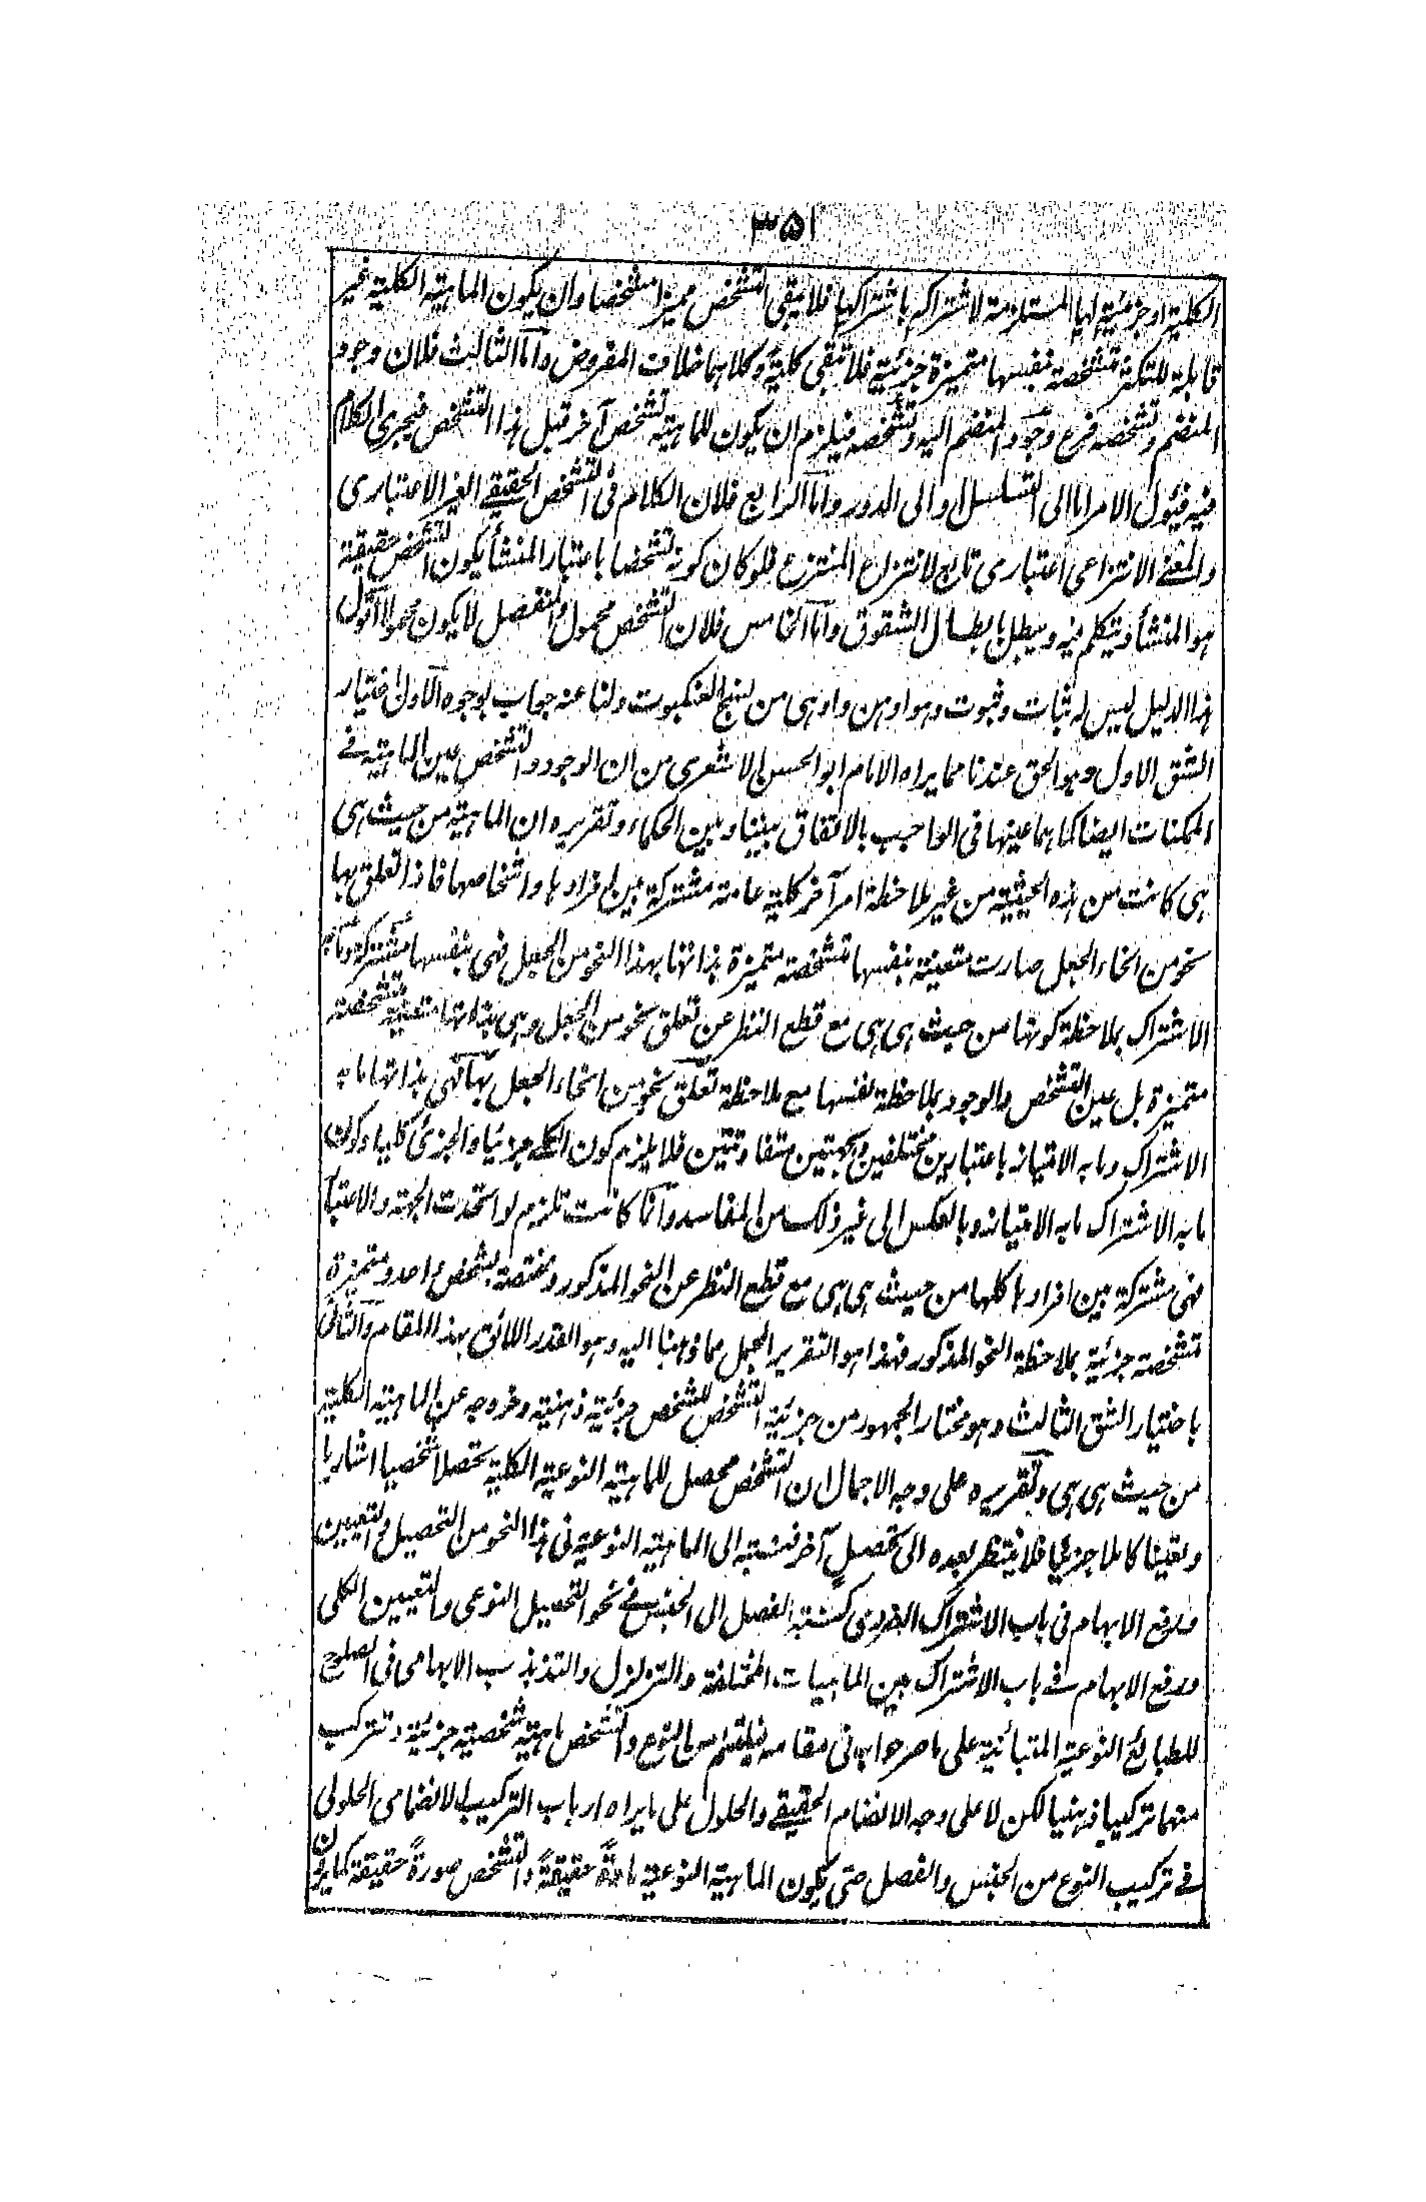 ٣٥١
الكلية او جزئية لها المستلزمة لاشتراكه باشتراكها فلا يبقى التشخص مميزا مشخصا وان يكون الماهية الكلية غير
قابلة للتكثر متشخصة بنفسها متميزة جزئية فلا تبقى كلية وكلاهما خلاف المفروض واما الثالث فلان وجود
المنضم وتشخصه فرع وجود المنضم اليه وتشخصه فيلزم ان يكون للماهية تشخص آخر قبل هذا التشخص فيجرى الكلام
فيه فيئول الامر اما الى التسلسل او الى الدور واما الرابع فلان الكلام فى التشخص الحقيقے الغير الاعتبارى
والمعنے الانتزاعى اعتبارى تابع لانتزاع المنتزع فلو كان كونه تشخصا باعتبار المنشأ يكون التشخص حقيقة
هو المنشأ ويتكلم فيه ويبطل بابطال الشقوق واما الخامس فلان التشخص محمول والمنفصل لا يكون محمولا اقول
هذا الدليل ليس له ثبات وثبوت وهو اوهن واوهى من نسج العنكبوت ولنا عنه جواب بوجوه الاول اختيار
الشق الاول وهو الحق عندنا مما يراه الامام ابو الحسن الاشعرى من ان الوجود والتشخص عين الماهية فے
الممكنات ايضا كما هما عينها فى الواجب بالاتفاق بيننا وبين الحكماء وتقريره ان الماهية من حيث هى
هى كانت من هذه الحيثية من غير ملاحظة امر آخر كلية عامة مشتركة بين افرادها واشخاصها فاذا تعلق بها
نحو من انحاء الجعل صارت متعينة بنفسها متشخصة متميزة بذاتها بهذا النحو من الجعل فهى بنفسها مشتركة وما به
الاشتراك بملاحظة كونها من حيث هى هى مع قطع النظر عن تعلق نحو من الجعل وهى بذاتها متعينة متشخصة
متميزة بل عين التشخص والوجود بملاحظة نفسها مع ملاحظة تعلق نحو من انحاء الجعل بها فهى بذاتها ما به
الاشتراك وما به الامتياز باعتبارين مختلفين وبجهتين متفاوتتين فلا يلزم كون الكلے جزئيا والجزئى كليا وكون
ما به الاشتراك ما به الامتياز وبالعكس الى غير ذلك من المفاسد وانما كانت تلزم لو اتحدت الجهة والاعتبار
فهى مشتركة بين افرادها كلها من حيث هى هى مع قطع النظر عن النحو المذكور ومختصة بشخص واحد ومتميزة
متشخصة جزئية بملاحظة النحو المذكور فهذا هو التقرير المجمل مما ذهبنا اليه وهو القدر اللائق بهذا المقام والثانى
باختيار الشق الثالث وهو مختار الجمهور من جزئية التشخص للشخص جزئية ذهنية وخروجه عن الماهية الكلية
من حيث هى هى وتقريره على وجه الاجمال ان التشخص محصل للماهية النوعية الكلية تحصلا شخصيا اشاريا
وتعينا كاملا جزئيا فلا ينتظر بعده الى تحصل آخر فنسبته الى الماهية النوعية فى هذا النحو من التحصيل والتعيين
ورفع الابهام فى باب الاشتراك الفردى كنسبة الفصل الى الجنس فے نحو التحصيل النوعى والتعيين الكلى
ورفع الابهام فے باب الاشتراك بين الماهيات المختلفة والتزلزل والتذبذب الابهامى فى الصلوح
للطبائع النوعية المتبائنة على ما صرحوا به فى مقامه فيلتئم من النوع والتشخص ماهية شخصية جزئية وتتركب
منهما تركيبا ذهنيا لكن لا على وجه الانضمام الحقيقے والحلول على ما يراه ارباب التركيب الانضمامى الحلولى
فے تركيب النوع من الجنس والفصل حتى يكون الماهية النوعية مادة حقيقة والتشخص صورة حقيقة كما يرون